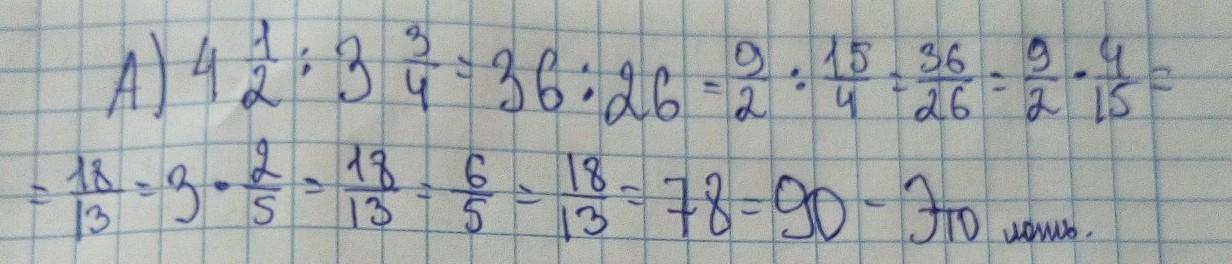 А) 4 1/2 : 3 3/4 = 36 : 26 = 9/2 : 15/4 = 36/26 = 9/2 · 4/15 =
= 18/13 = 3 · 2/5 = 18/13 = 6/5 = 18/13 = 78 = 90 - Это ложь.